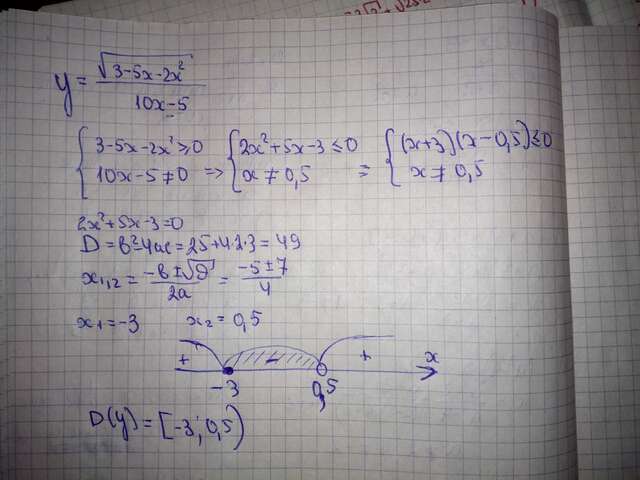 y = √(3-5x-2x²) / (10x-5)
{ 3-5x-2x² ≥ 0 { 2x²+5x-3 ≤ 0 { (x+3)(x-0,5) ≤ 0
10x-5 ≠ 0 => x ≠ 0,5 = x ≠ 0,5
2x²+5x-3=0
D = b²-4ac = 25+4·2·3 = 49
x₁,₂ = (-b±√D)/2a = (-5±7)/4
x₁ = -3 x₂ = 0,5
+ - + x
-3 0,5
D(y) = [-3; 0,5)